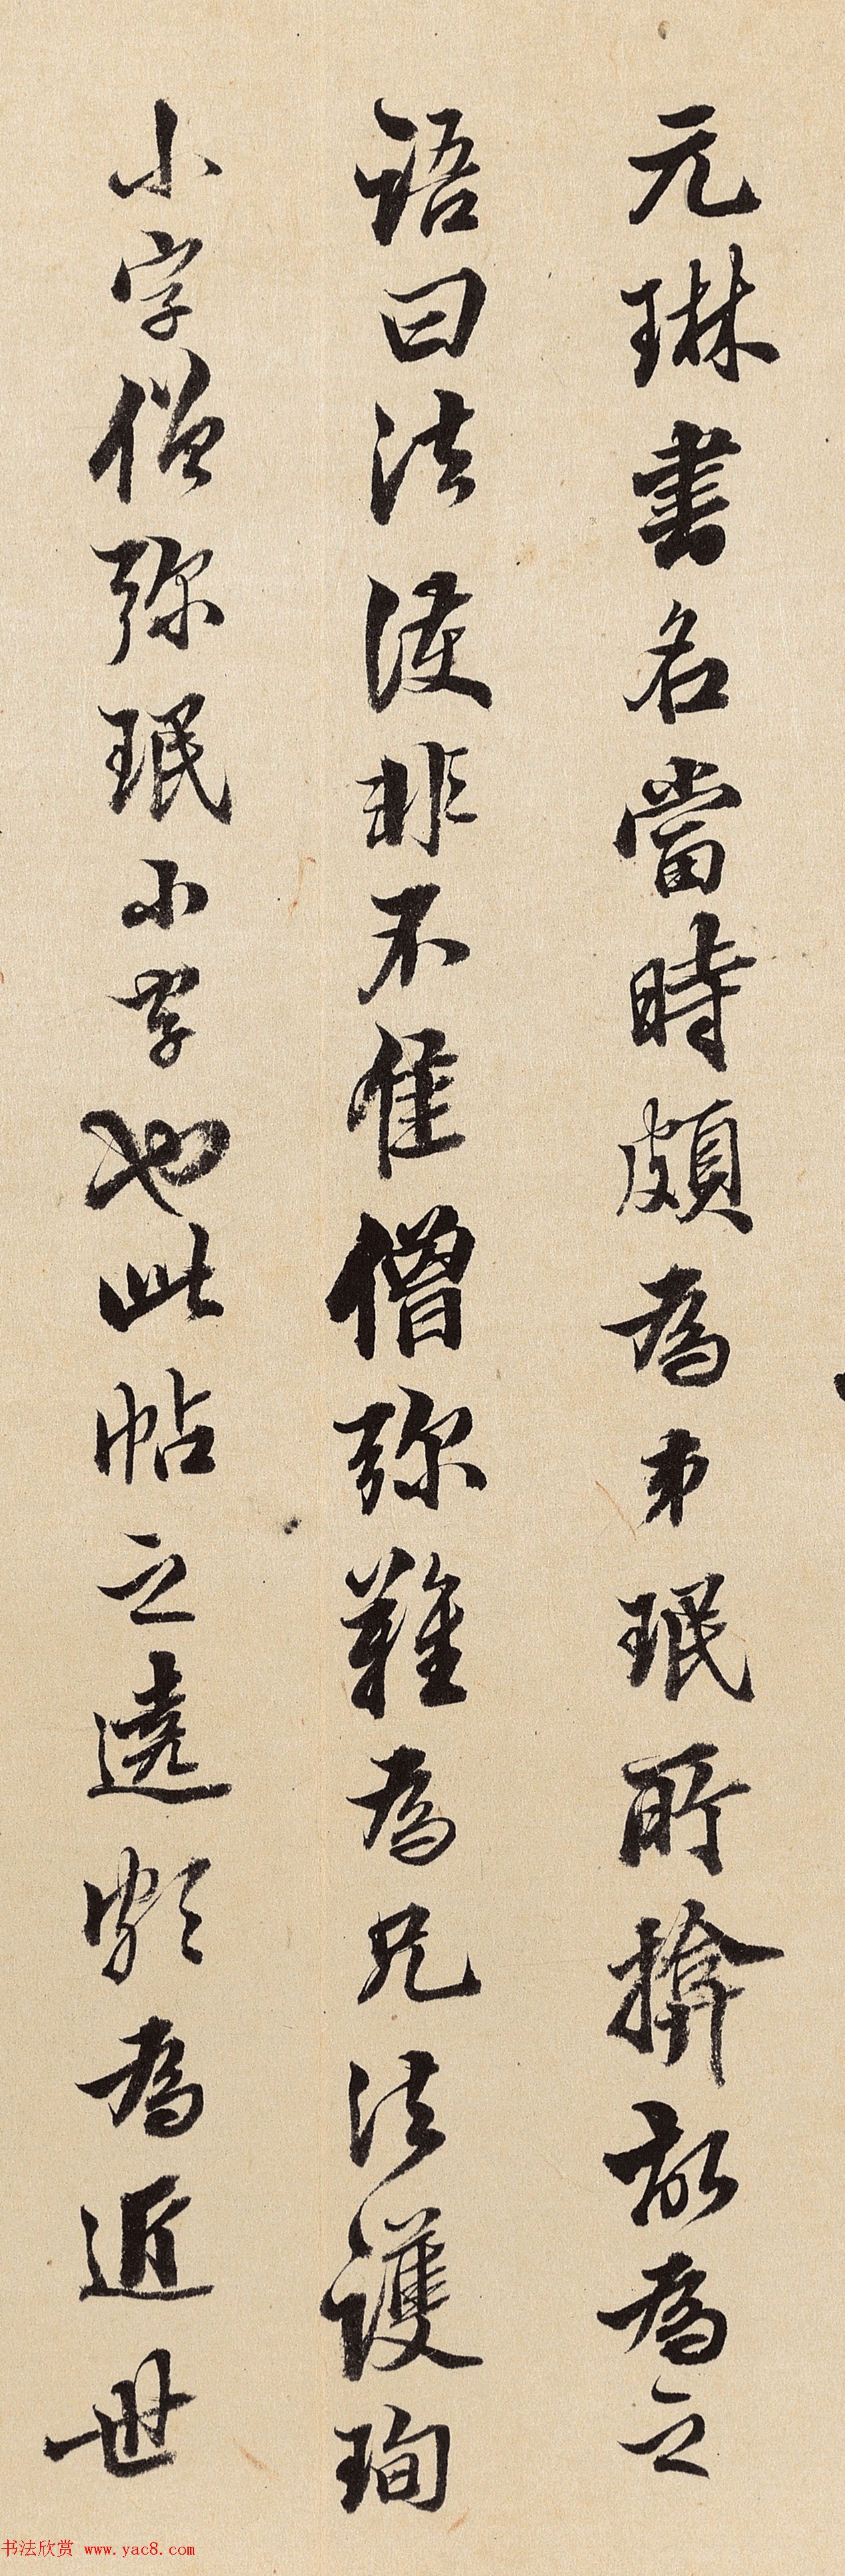 元琳書名當時頗為弟珉所揜故為之
語曰法護非不佳僧弥難為兄法護珣
小字僧弥珉小字也此帖之遶頗為近世
书法欣赏 www.yac8.com